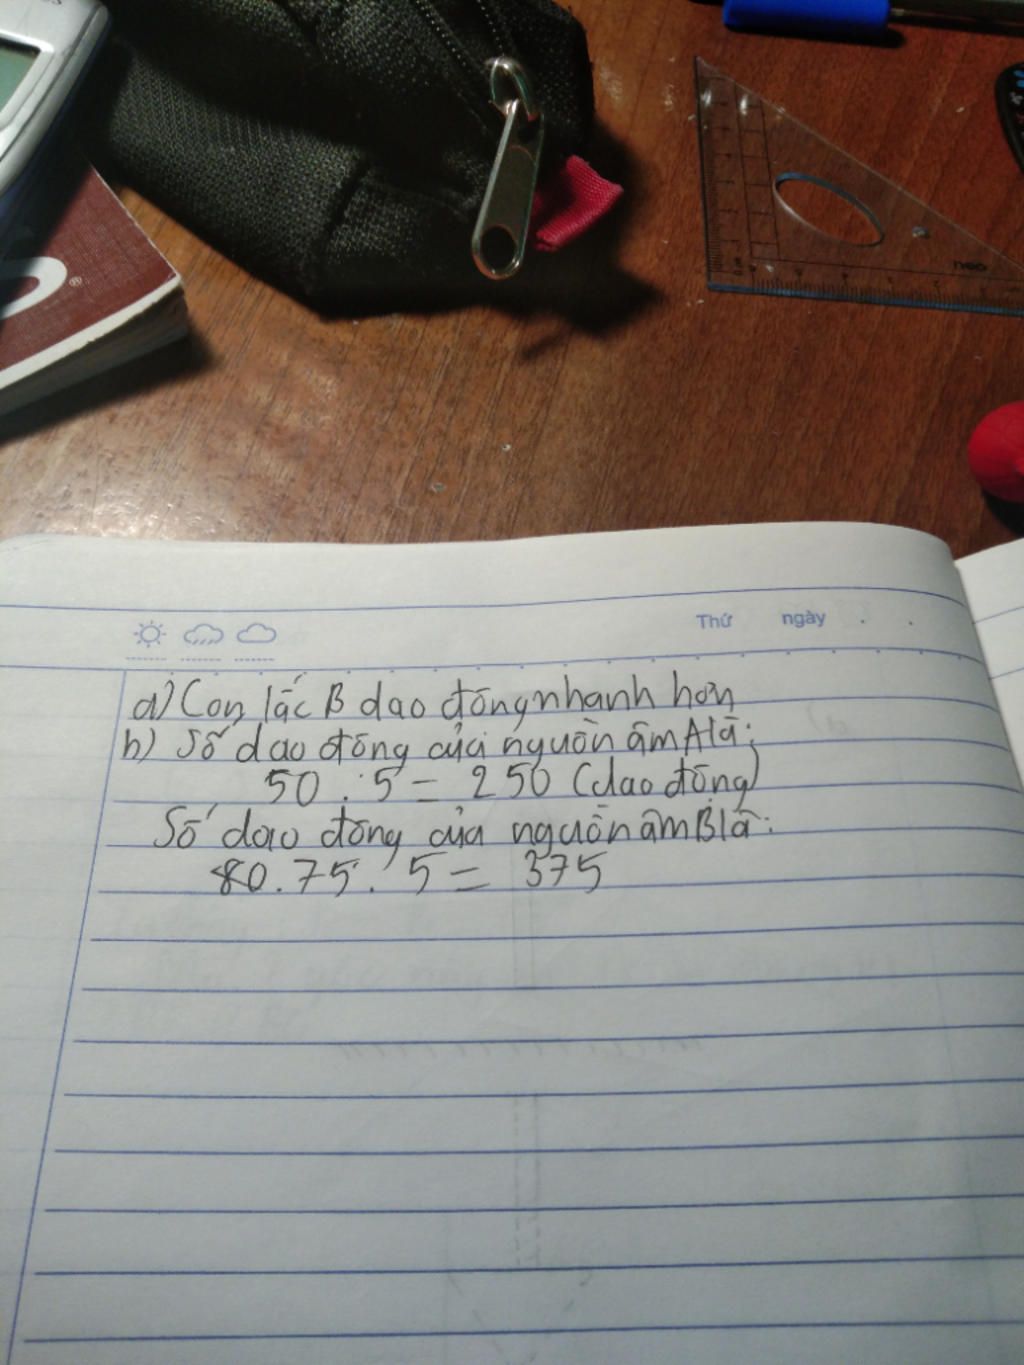 neo
®
Thứ ngày . .
a) Con lắc B dao động nhanh hơn
b) Số dao động của nguồn âm A là:
50 . 5 = 250 (dao động)
Số dao động của nguồn âm B là:
80.75. 5 = 375